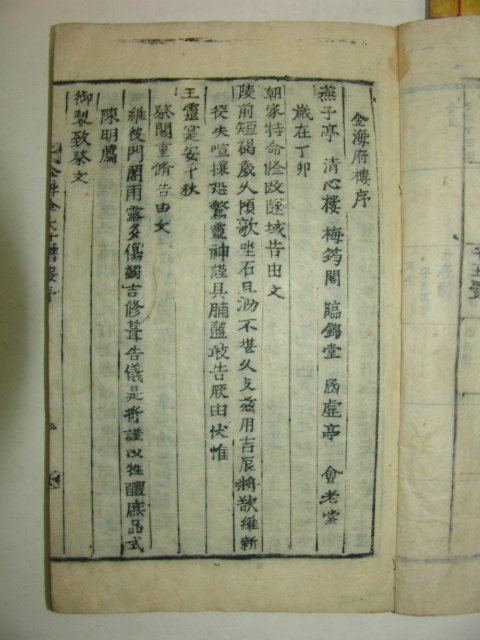 金海府樓序
燕子亭 清心樓 梅筠閣 臨錦堂 涵虛亭 會老堂
歲在丁卯
朝家特命修改塋域告由文
陵前短碣歲久頃欹坐石且泐不堪久支玆用吉辰將欲維新
從失喧攘恐驚靈神謹具脯醢敢告厥由伏惟
王靈寔安千秋
祭閣重脩告由文
維彼門閣雨露多傷蠲吉修葺告儀是將謹以牲醴庶品式
陳明薦
御製致祭文